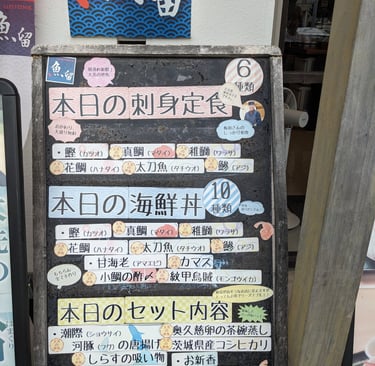 魚留
魚留
本日の刺身定食
6
種類
・鰹(カツオ) 真鯛(マダイ) 稚鰤(ワラサ)
花鯛(ハナダイ) 太刀魚(タチウオ) 鯵(アジ)
本日の海鮮丼
10
種類
・鰹(カツオ) 真鯛(マダイ) 稚鰤(ワラサ)
花鯛(ハナダイ) 太刀魚(タチウオ) 鯵(アジ)
・甘海老(アマエビ) カマス
小鯛の酢〆 紋甲烏賊(モンゴウイカ)
本日のセット内容
・潮際(ショウサイ) 奥久慈卵の茶碗蒸し
河豚(フグ)の唐揚げ 茨城県産コシヒカリ
しらすの吸い物 ・お新香